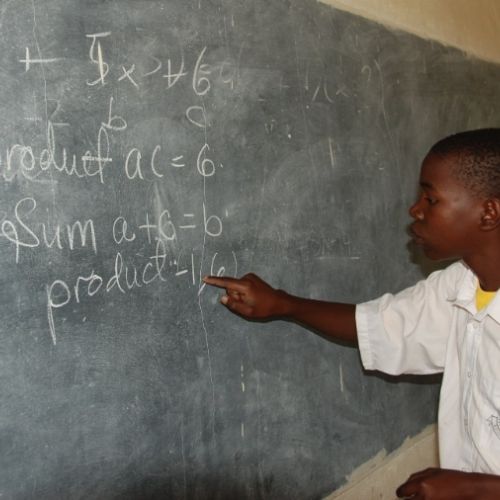 + 5x + 6
b c
product ac = 6.
Sum a + c = b
product = 1, 6